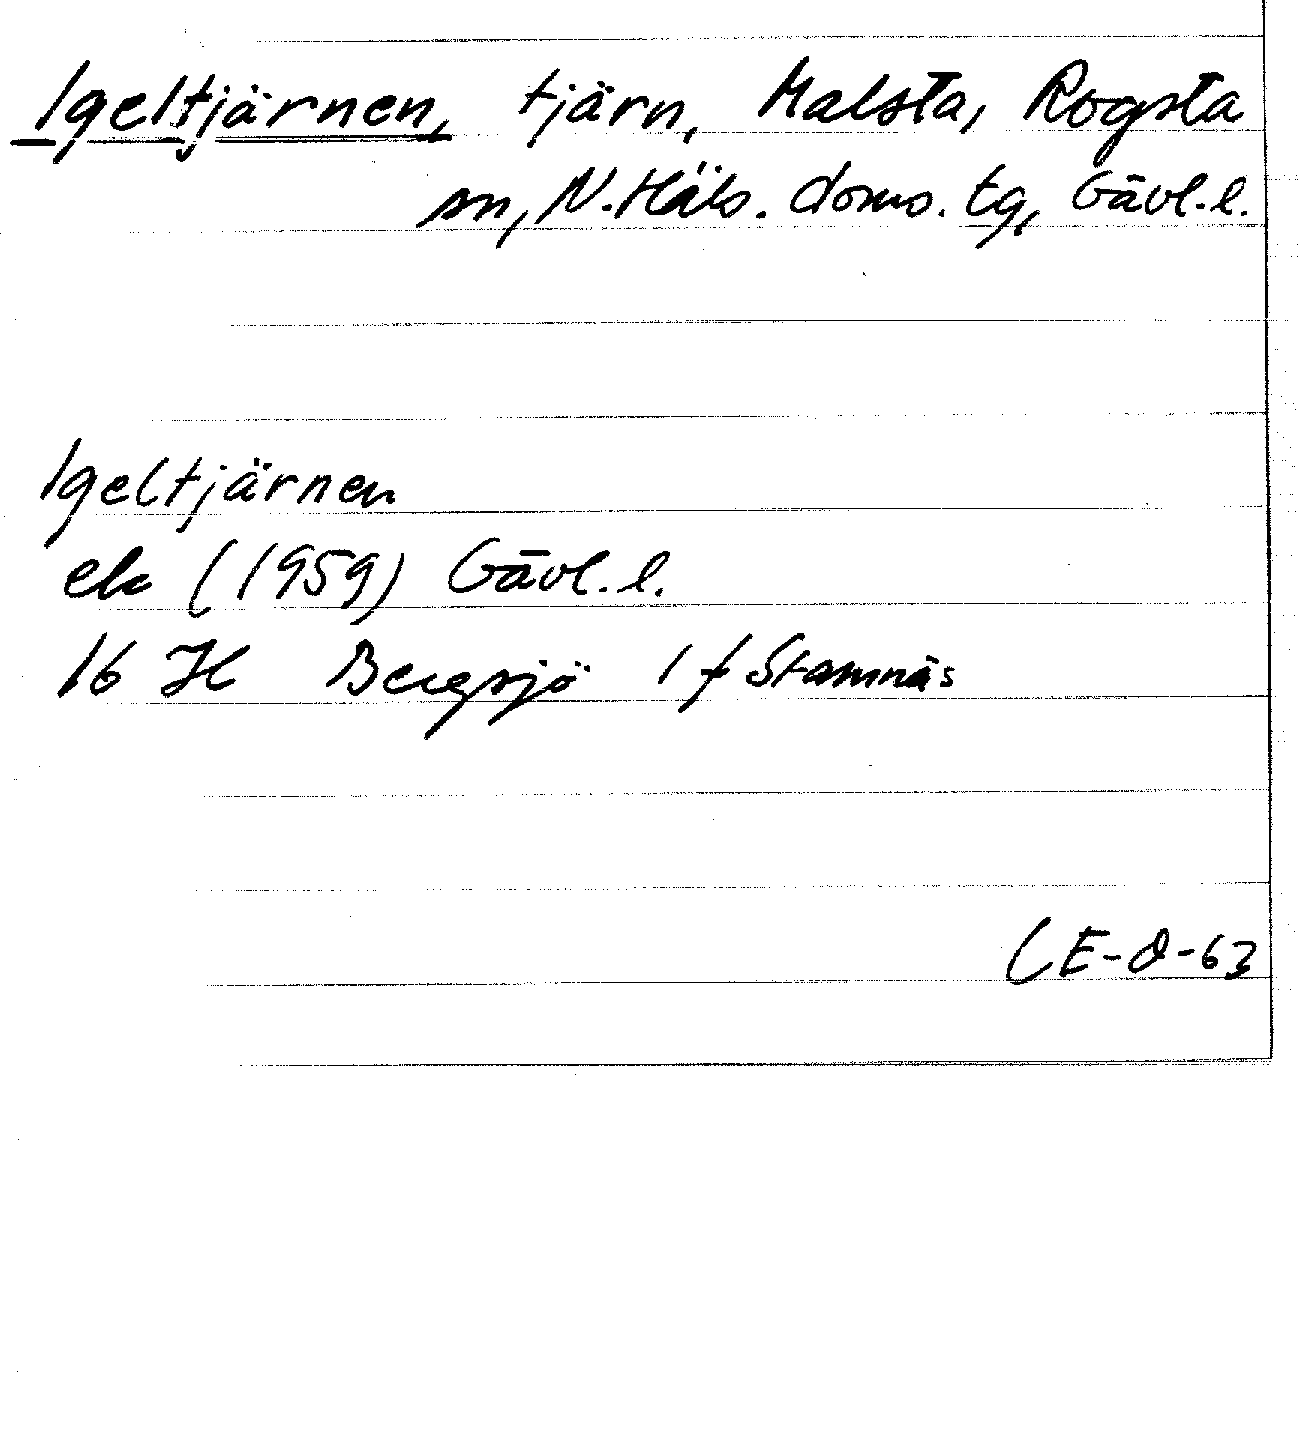 Igeltjärnen, tjärn, Malsta, Rogsta
sn, N. Häls. doms. tg, Gävl. l.
Igeltjärnen
ek (1959) Gävl. l.
16 H Bergsjö 1 f Stamnäs
CE-O-63